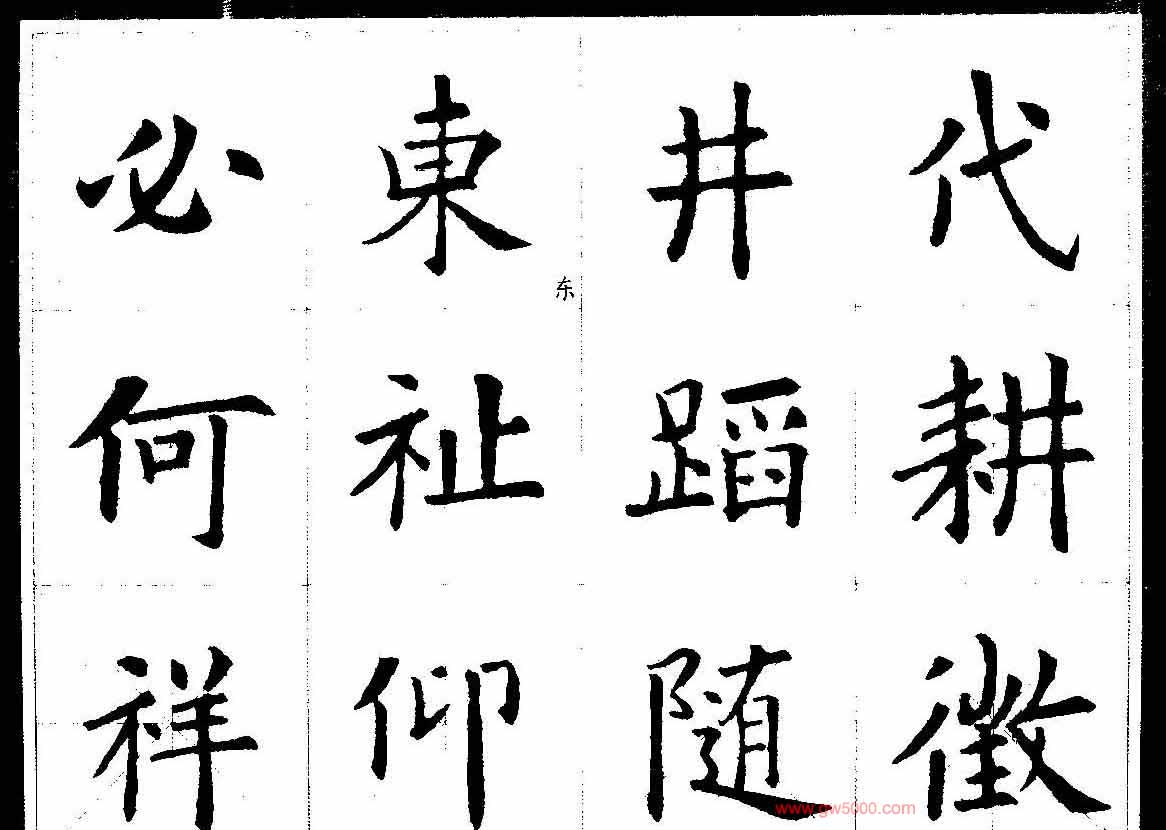 代耕徵
井蹈随
東祉仰
东
必何祥
www.gw5000.com